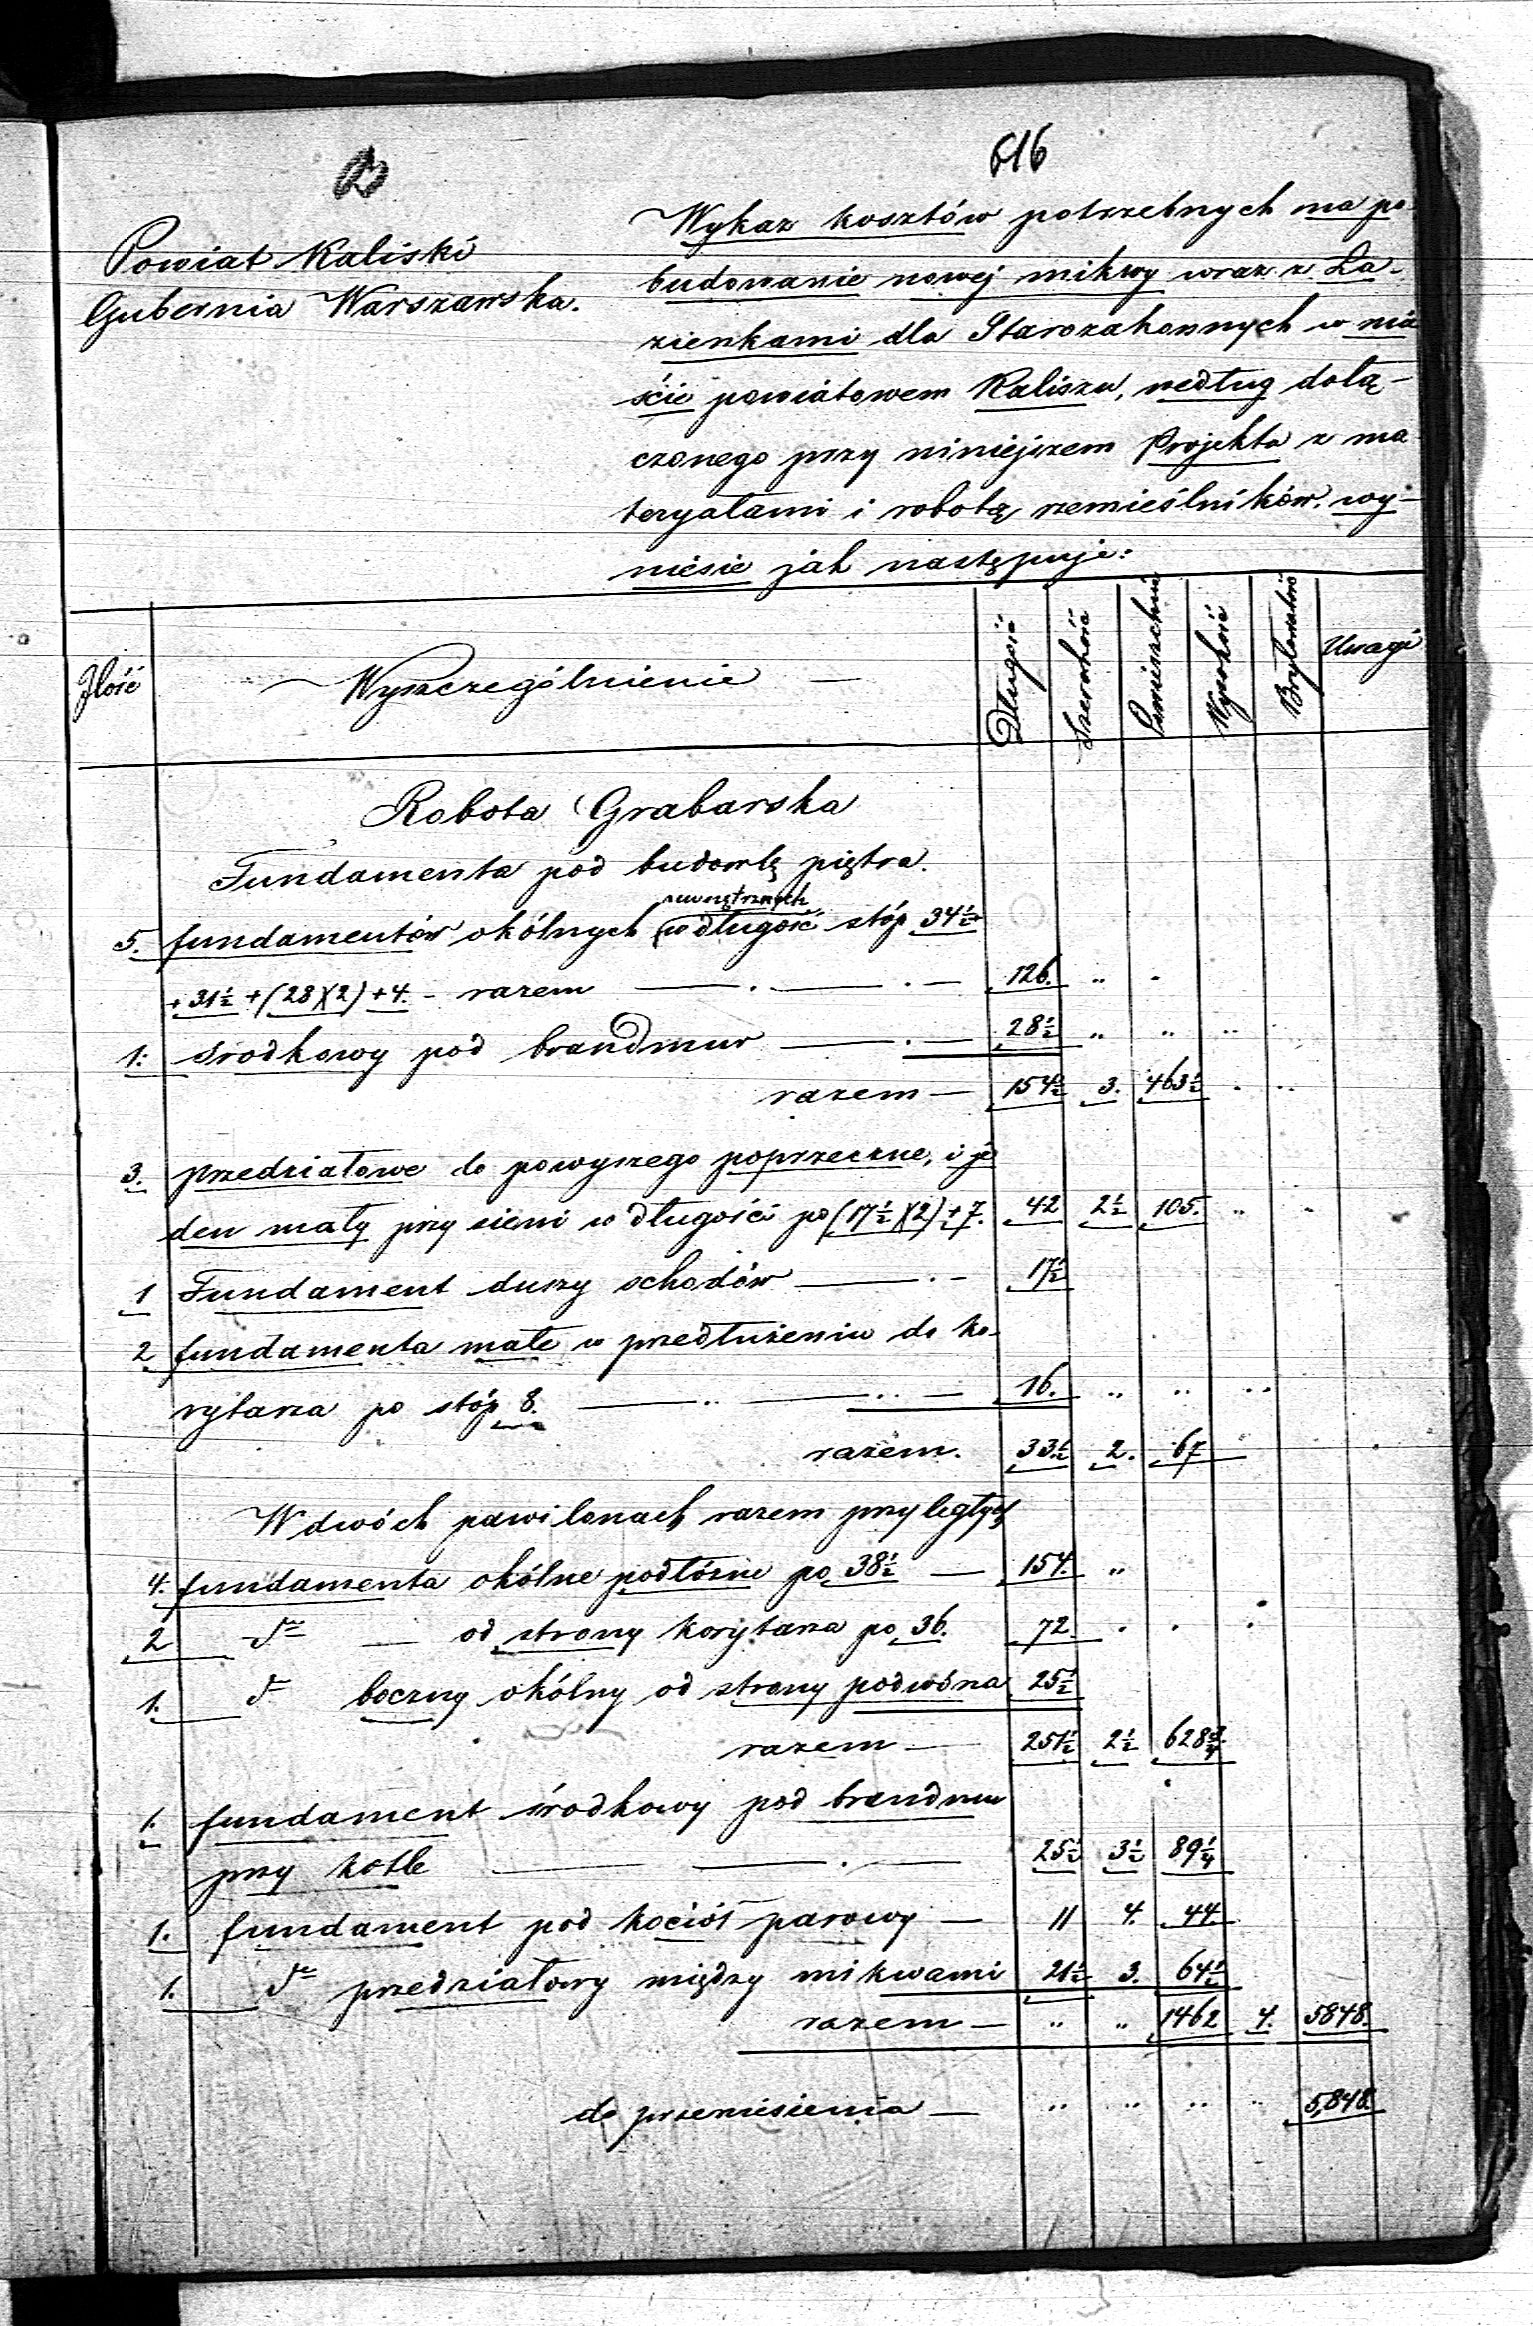 616
Powiat Kaliski
Gubernia Warszawska.
Wykaz kosztów potrzebnych na po-
budowanie nowej mikwy wraz z Ła-
zienkami dla Starozakonnych w mie
ście powiatowem Kaliszu, według dołą-
czonego przy niniejszem Projekta z ma
teryałami i robotą rzemieślników, wy-
niesie jak następuje:
Ilość Wyszczególnienie Długość Szerokość Powierzchnia Wysokość Bryłowatość Uwagi
Robota Grabarska
Fundamenta pod budowlę piętra.
zewnętrznych
5. fundamentów okólnych w długość stóp 34½
+31½ + (28)(2) + 4. – razem — . — . — 126. .. .
1. środkowy pod brandmur — . — 28½ .. .. ..
razem — 154½ 3. 463½ . ..
3. przedziałowe do powyszego poprzeczne, i je
den mały przy sieni w długości po (17½)(2)+7. 42 2½ 105. .. .
1 Fundament duszy schodów — . – 17½
2 fundamenta małe w przedłużeniu do ko-
rytarza po stóp 8. — .. — .. — 16. .. .. ..
razem. 33½ 2. 67
W dwóch pawilonach razem przyległych
4. fundamenta okólne podłóżne po 38½ — 154. ..
2 d° — od strony korytarza po 36. 72. . . :
1. d° boczny okólny od strony podwórza 25½
razem — 251½ 2½ 628¾
1. fundament środkowy pod brandmur
przy kotle — — . — 25½ 3½ 89¼
1. fundament pod kocioł parowy — 11 4. 44.
1. d° przedziałowy między mikwami 21½ 3. 64½
razem — .. .. 1462 4. 5848.
do przeniesienia — .. .. .. .. 5,848.